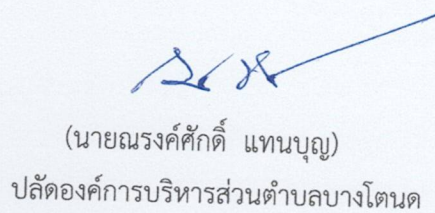 (นายณรงค์ศักดิ์ แทนบุญ)
ปลัดองค์การบริหารส่วนตำบลบางโตนด